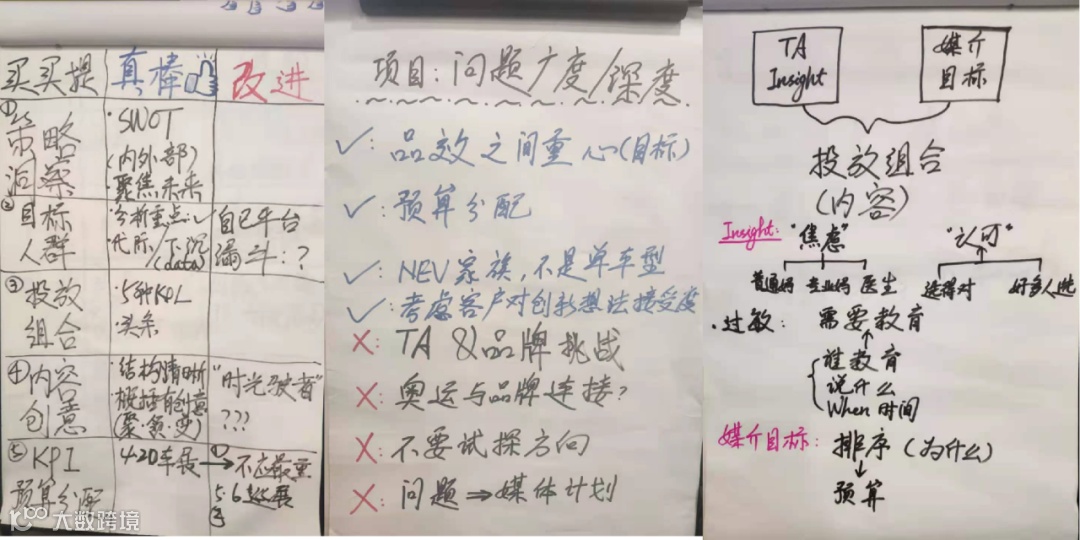 买买提 真棒 改进
① 策略洞察
·SWOT
(内外部)
·聚焦未来
② 目标人群
·分析重点:✓
·代际/下沉
(data)
自己平台
漏斗:?
③ 投放
组合
·5种KOL
·头条
④ 内容
创意
·结构清晰
·概括自创意
(聚·领·变)
"时光驶者"
???
⑤ KPI
预算分配
4·20车展 → 不应最重
5·6
项目:问题广度/深度
✓: 品效之间重心(目标)
✓: 预算分配
✓: NEV家族,不是单车型
✓: 考虑客户对创新想法接受度
X: TA & 品牌挑战
X: 奥运与品牌连接?
X: 不要试探方向
X: 问题⇒媒体计划
TA
Insight
媒介
目标
投放组合
(内容)
Insight: "焦虑" "认可"
普通妈 专业妈 医生 选得对 好多人选
·过敏: 需要教育
谁教育
说什么
When 时间
媒介目标: 排序 (为什么)
预算
大数跨境